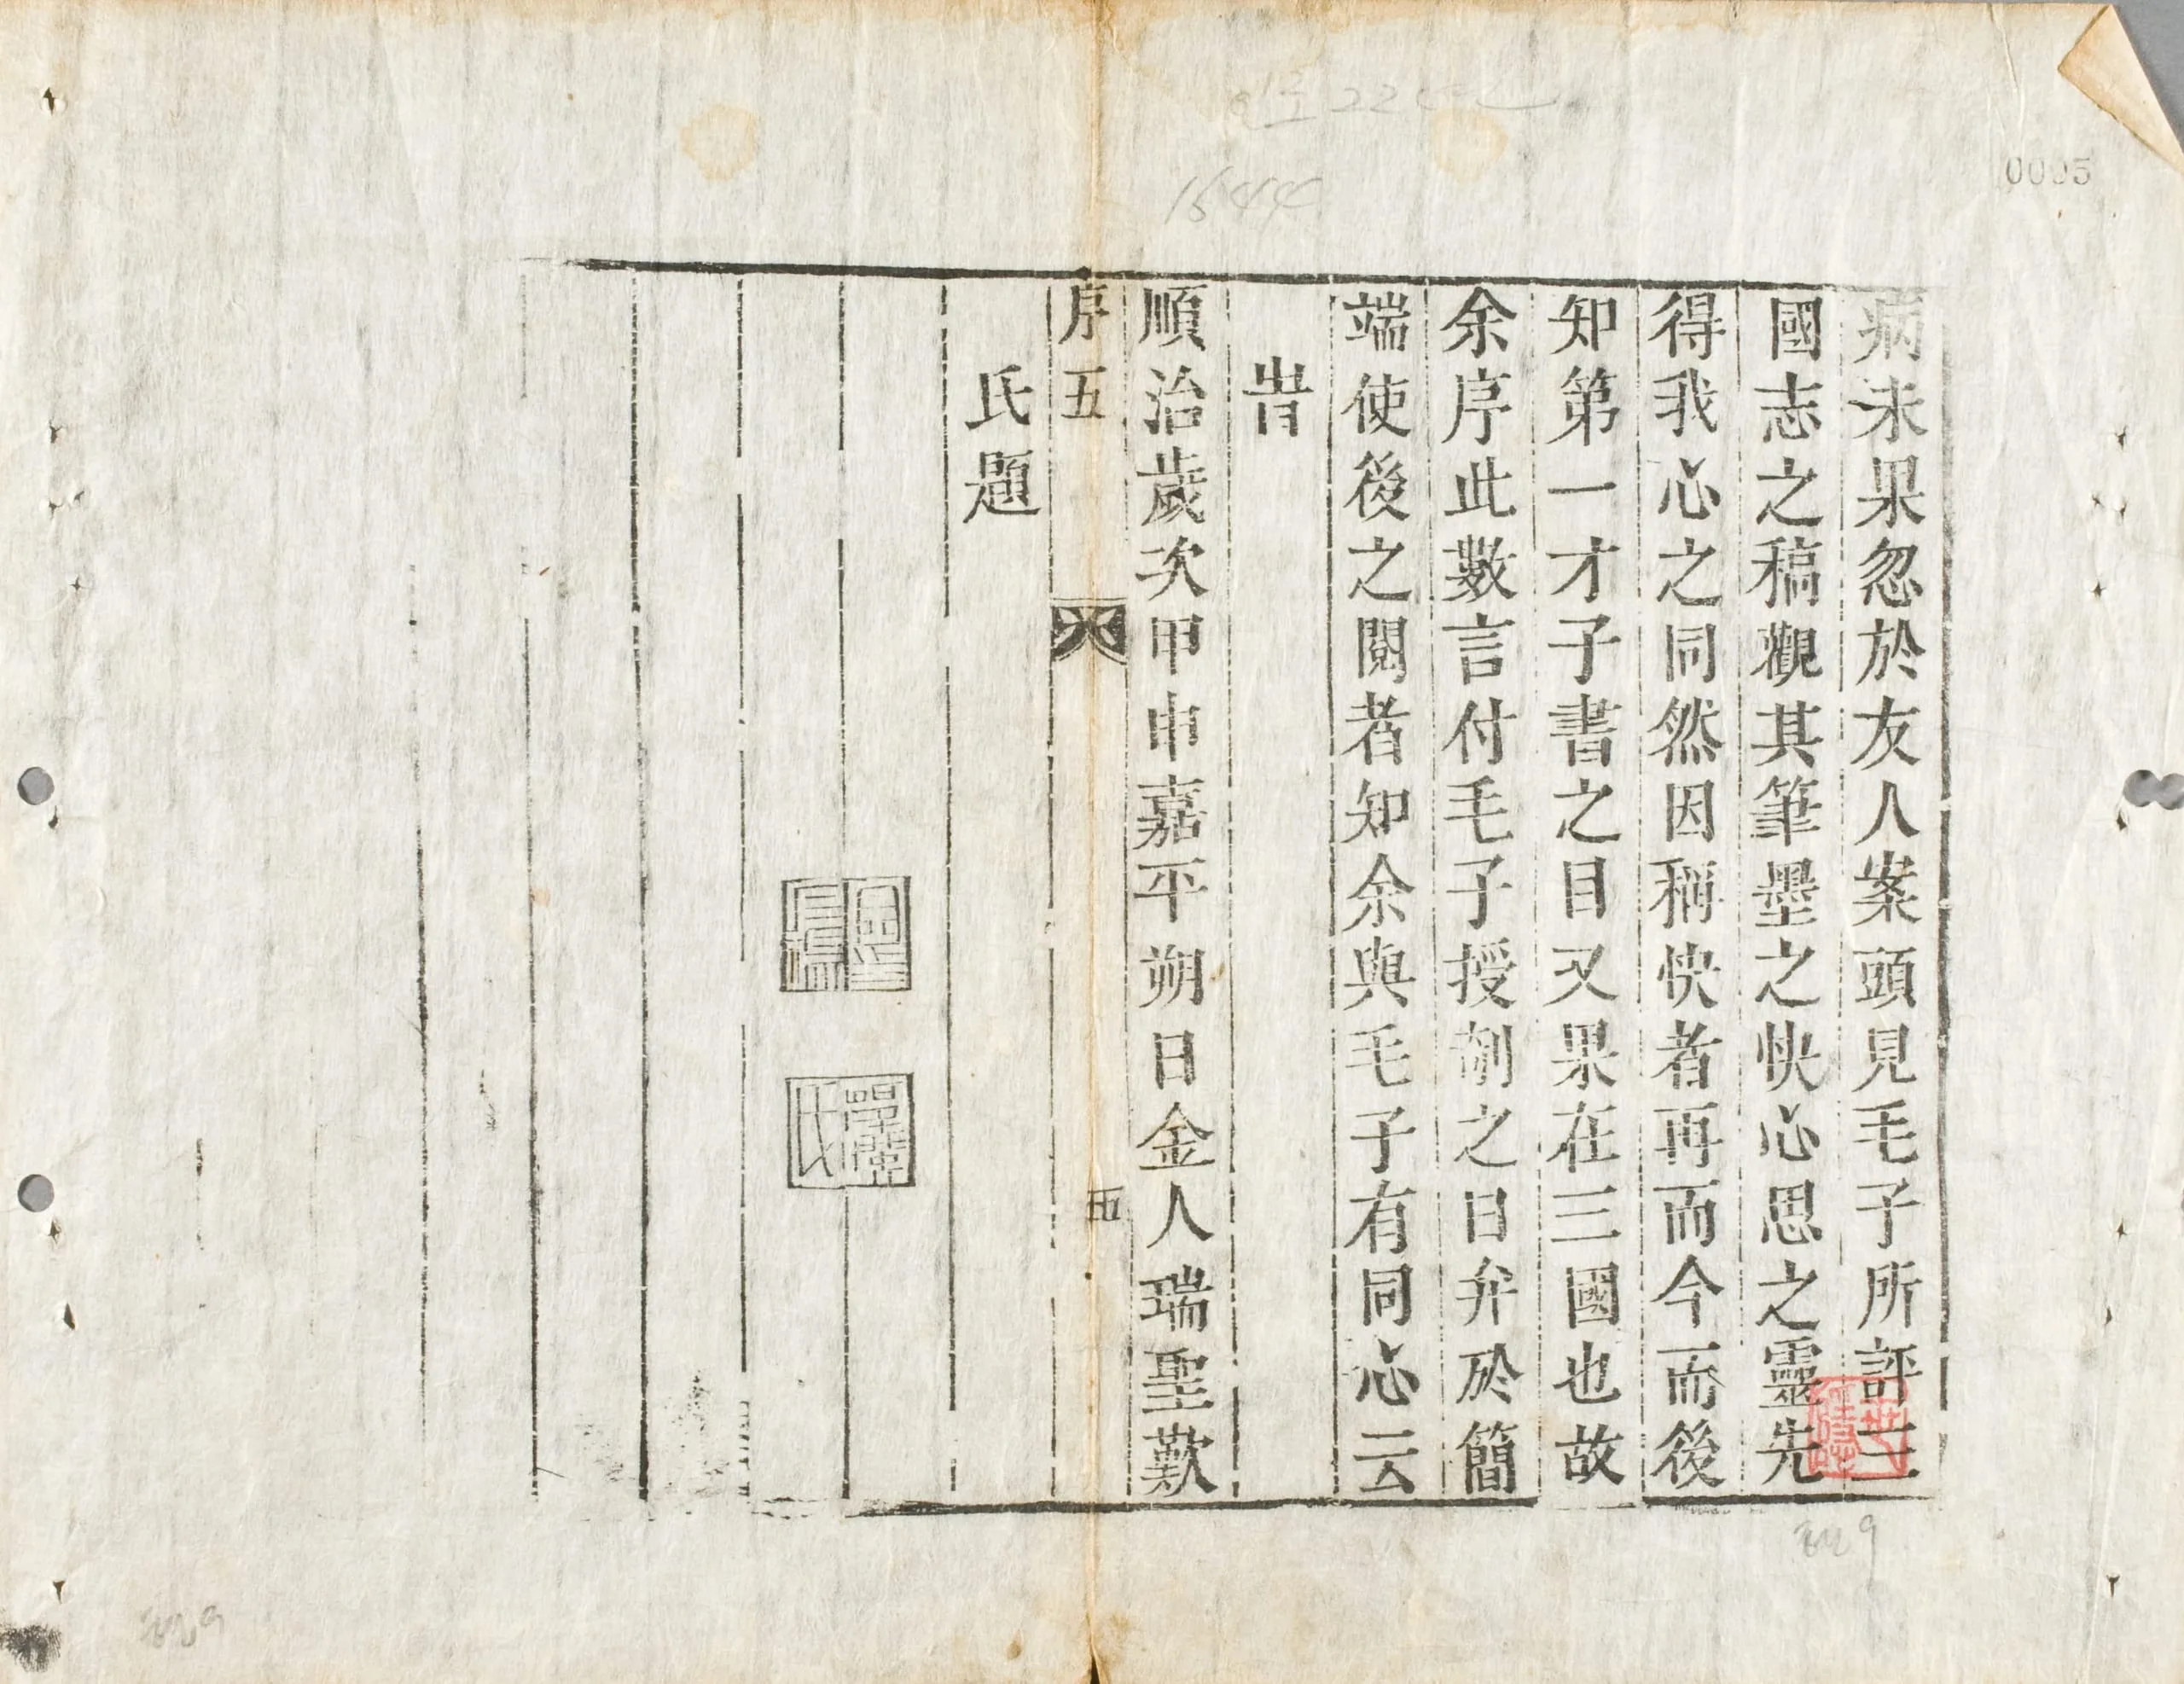 病未果忽於友人案頭見毛子所評三
國志之稿觀其筆墨之快心思之靈先
得我心之同然因稱快者再而今而後
知第一才子書之目又果在三國也故
余序此數言付毛子授剞之日弁於簡
端使後之閱者知余與毛子有同心云
旹
順治歲次甲申嘉平朔日金人瑞聖歎
序五
五
氏題
0005
1644